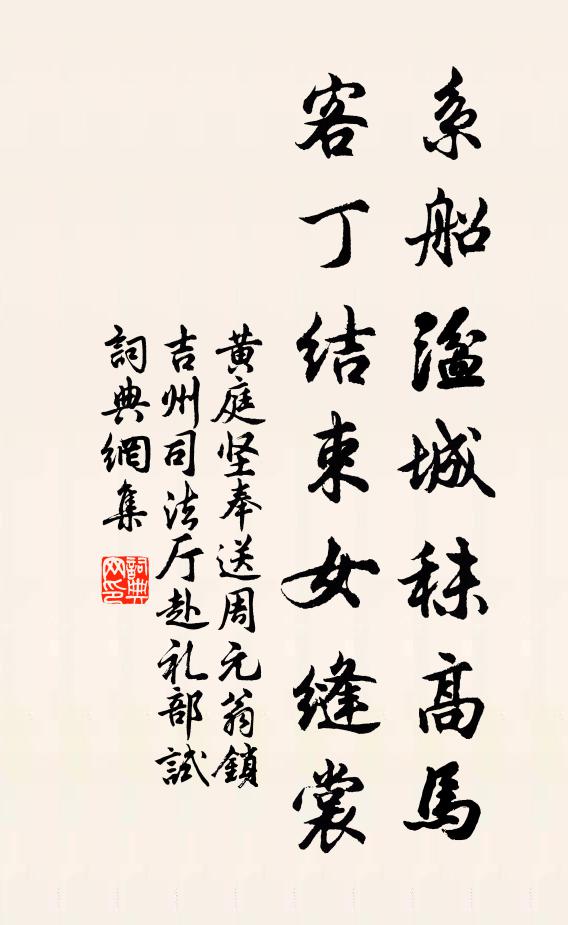 系船湓城秣高马
客丁结束女缝裳
黄庭坚奉送周元翁鎖
吉州司法厅赴礼部試
詞典網集
詞典网印